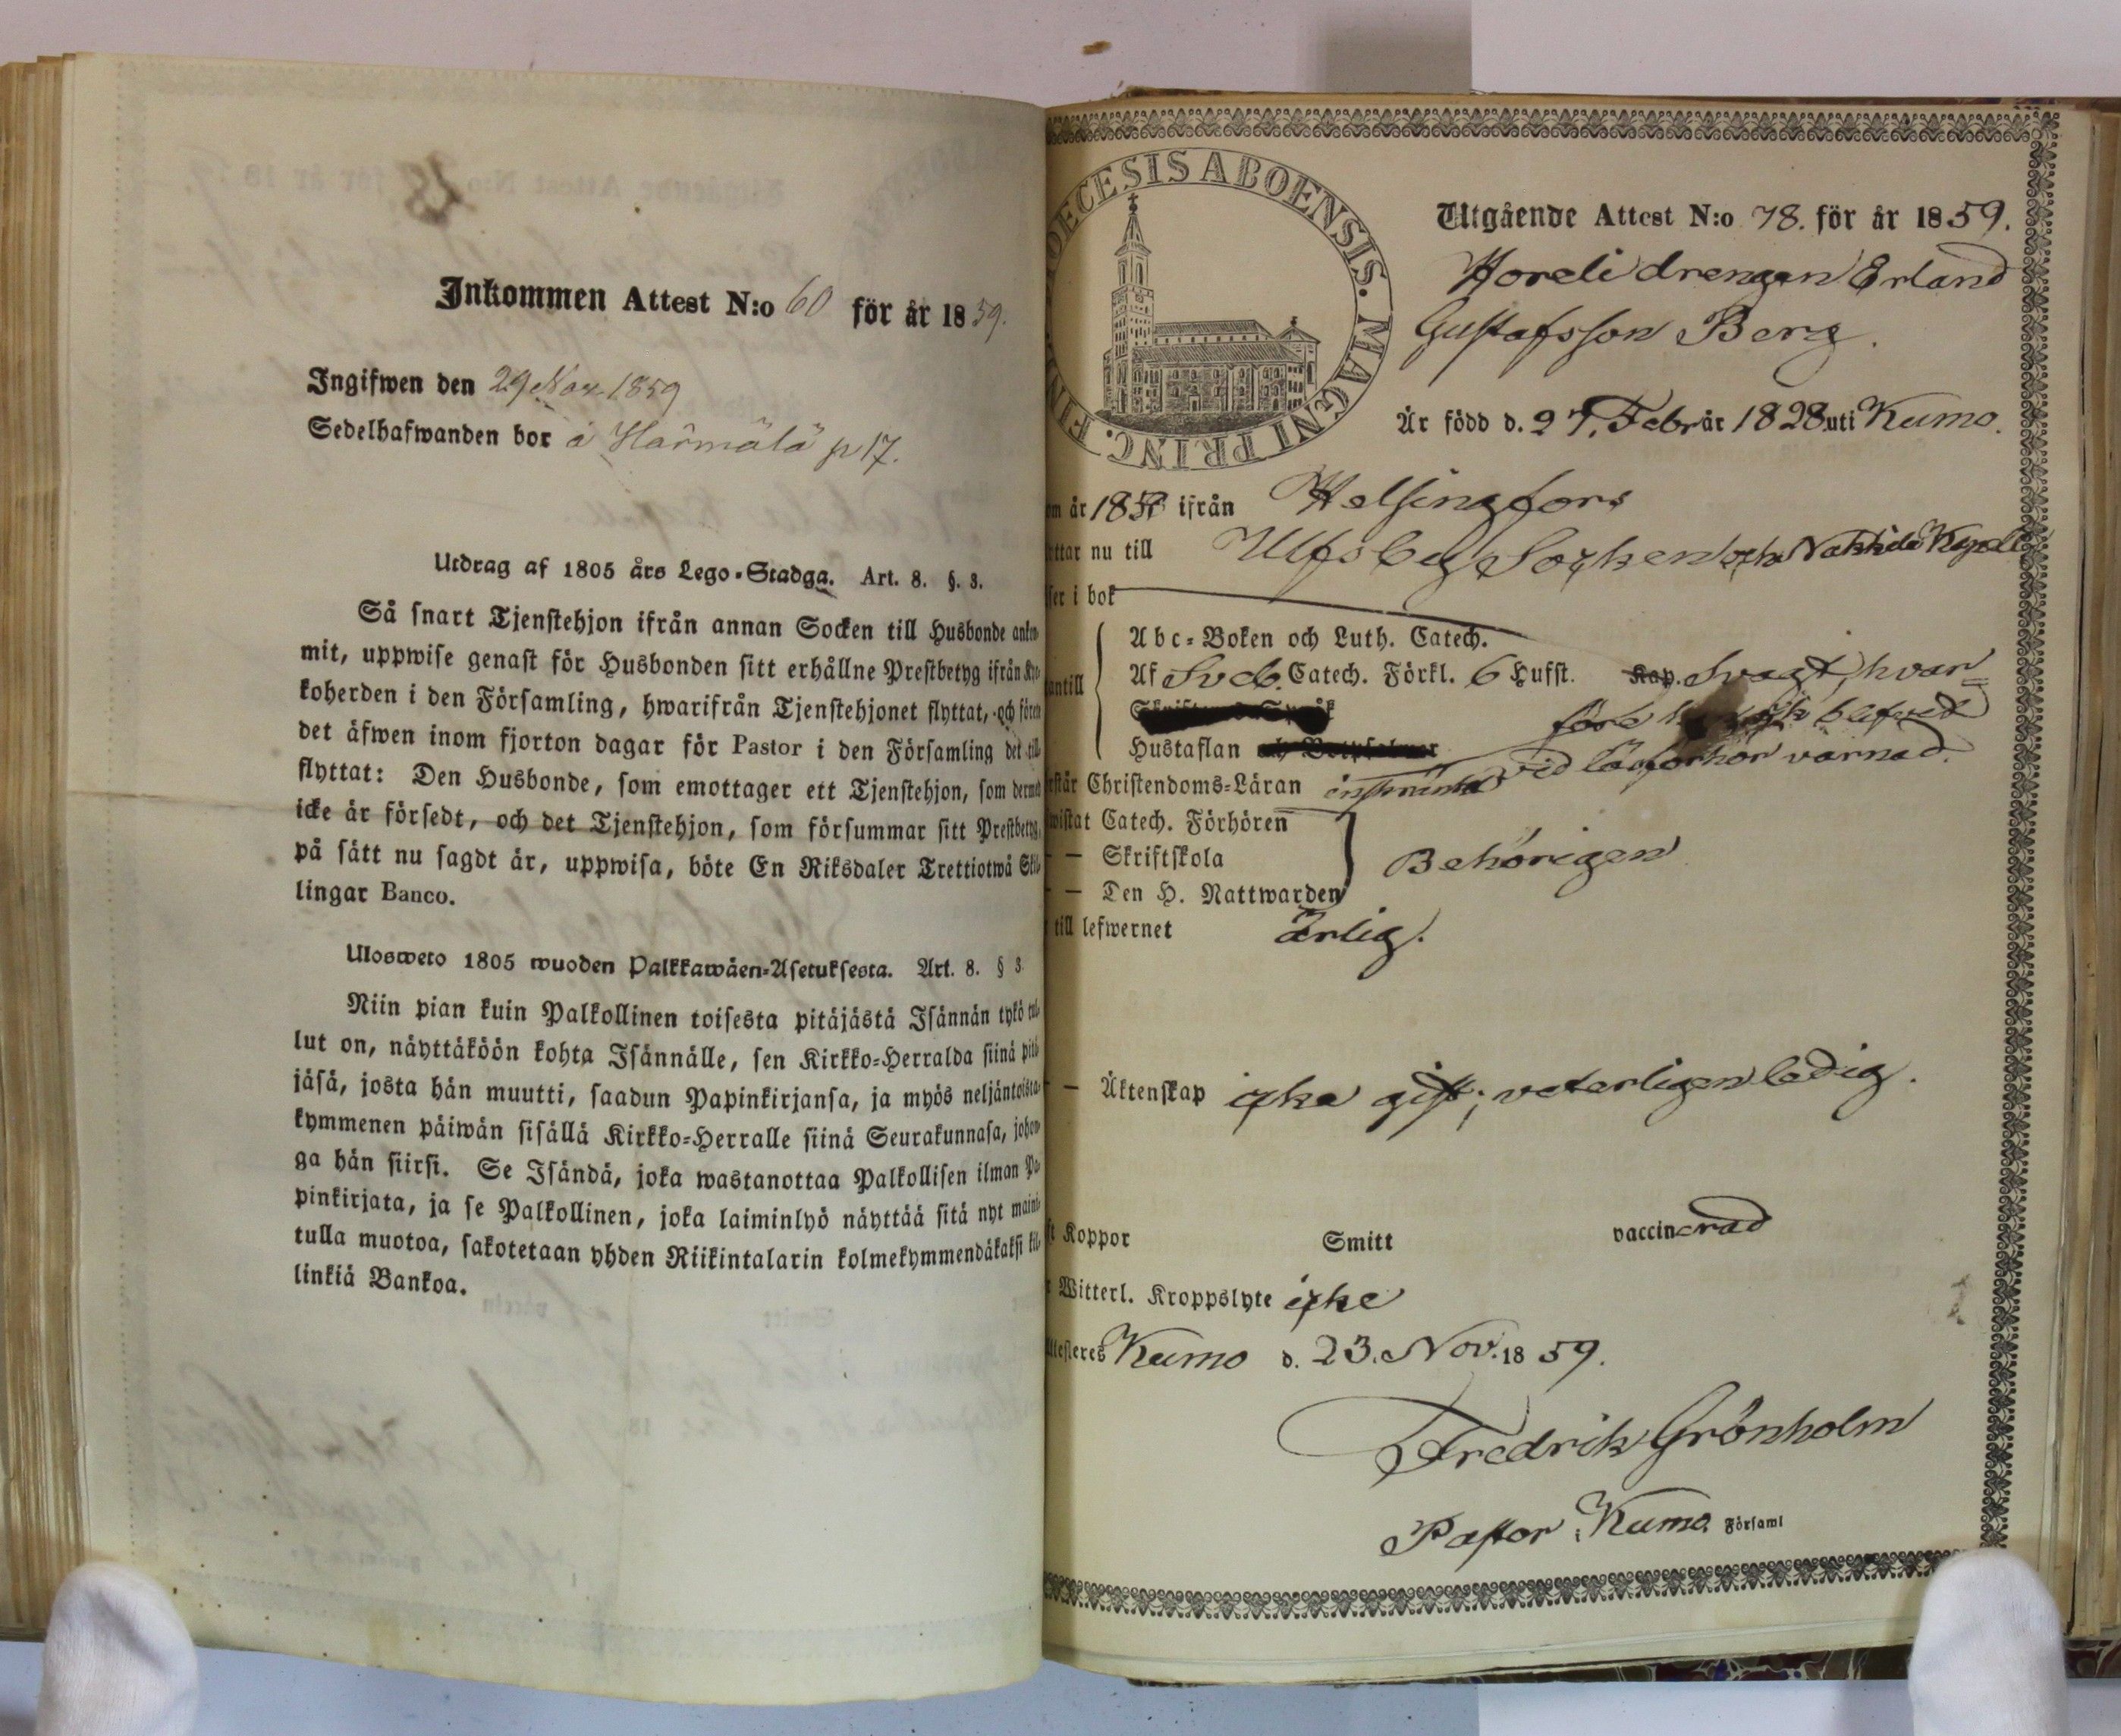 18
Inkommen Attest N:o 60 för år 1859.
Ingifwen den 29 Nov. 1859
Sedelhafwanden bor å Härmälä p 17.
Utdrag af 1805 års Lego-Stadga. Art. 8. §. 3.
Så snart Tjenstehjon ifrån annan Socken till Husbonde ankom-
mit, uppwise genast för Husbonden sitt erhållne Prestbetyg ifrån Kyr-
koherden i den Församling, hwarifrån Tjenstehjonet flyttat, och förete
det äfwen inom fjorton dagar för Pastor i den Församling det till-
flyttat: Den Husbonde, som emottager ett Tjenstehjon, som dermed
icke är försedt, och det Tjenstehjon, som försummar sitt Prestbetyg,
på sätt nu sagdt är, uppwisa, böte En Riksdaler Trettiotwå Skil-
lingar Banco.
Ulosweto 1805 wuoden Palkkawäen-Asetuksesta. Art. 8. § 3.
Niin pian kuin Palkollinen toisesta pitäjästä Isännän tykö tul-
lut on, näyttäköön kohta Isännälle, sen Kirkko-Herralda siinä pitä-
jäsä, josta hän muutti, saadun Papinkirjansa, ja myös neljäntoista-
kymmenen päiwän sisällä Kirkko-Herralle siinä Seurakunnasa, johon-
ga hän siirsi. Se Isändä, joka wastanottaa Palkollisen ilman Pa-
pinkirjata, ja se Palkollinen, joka laiminlyö näyttää sitä nyt maini-
tulla muotoa, sakotetaan yhden Riikintalarin kolmekymmendäkaksi kil-
linkiä Bankoa.
DECESIS ABOENSIS. MAGNI PRINC. FIN
Utgående Attest N:o 78. för år 1859.
Koreli drengen Erland
Gustafsson Berg.
Är född d. 27. Febr är 1828 uti Kumo.
om år 185 ifrån Helsingfors
ttar nu till Ulfsby Socken och Nakkila Kapell
ser i bok
Abc-Boken och Luth. Catech.
antill Af Sveb. Catech. Förkl. 6 Hufst. Kap. Svagt, hvar-
före blifvit
Hustaflan
vid läsförhör varnad.
rstår Christendoms-Läran
wistat Catech. Förhören
— Skriftskola Behörigen
— Den H. Nattwarden
till lefwernet Ärlig.
— Äktenskap icke gift; veterligen ledig.
ft Koppor Smitt vaccinerad
r Witterl. Kroppslyte icke
Attesteres Kumo d. 23. Nov. 1859.
Fredrik Grönholm
Pastor i Kumo Församl